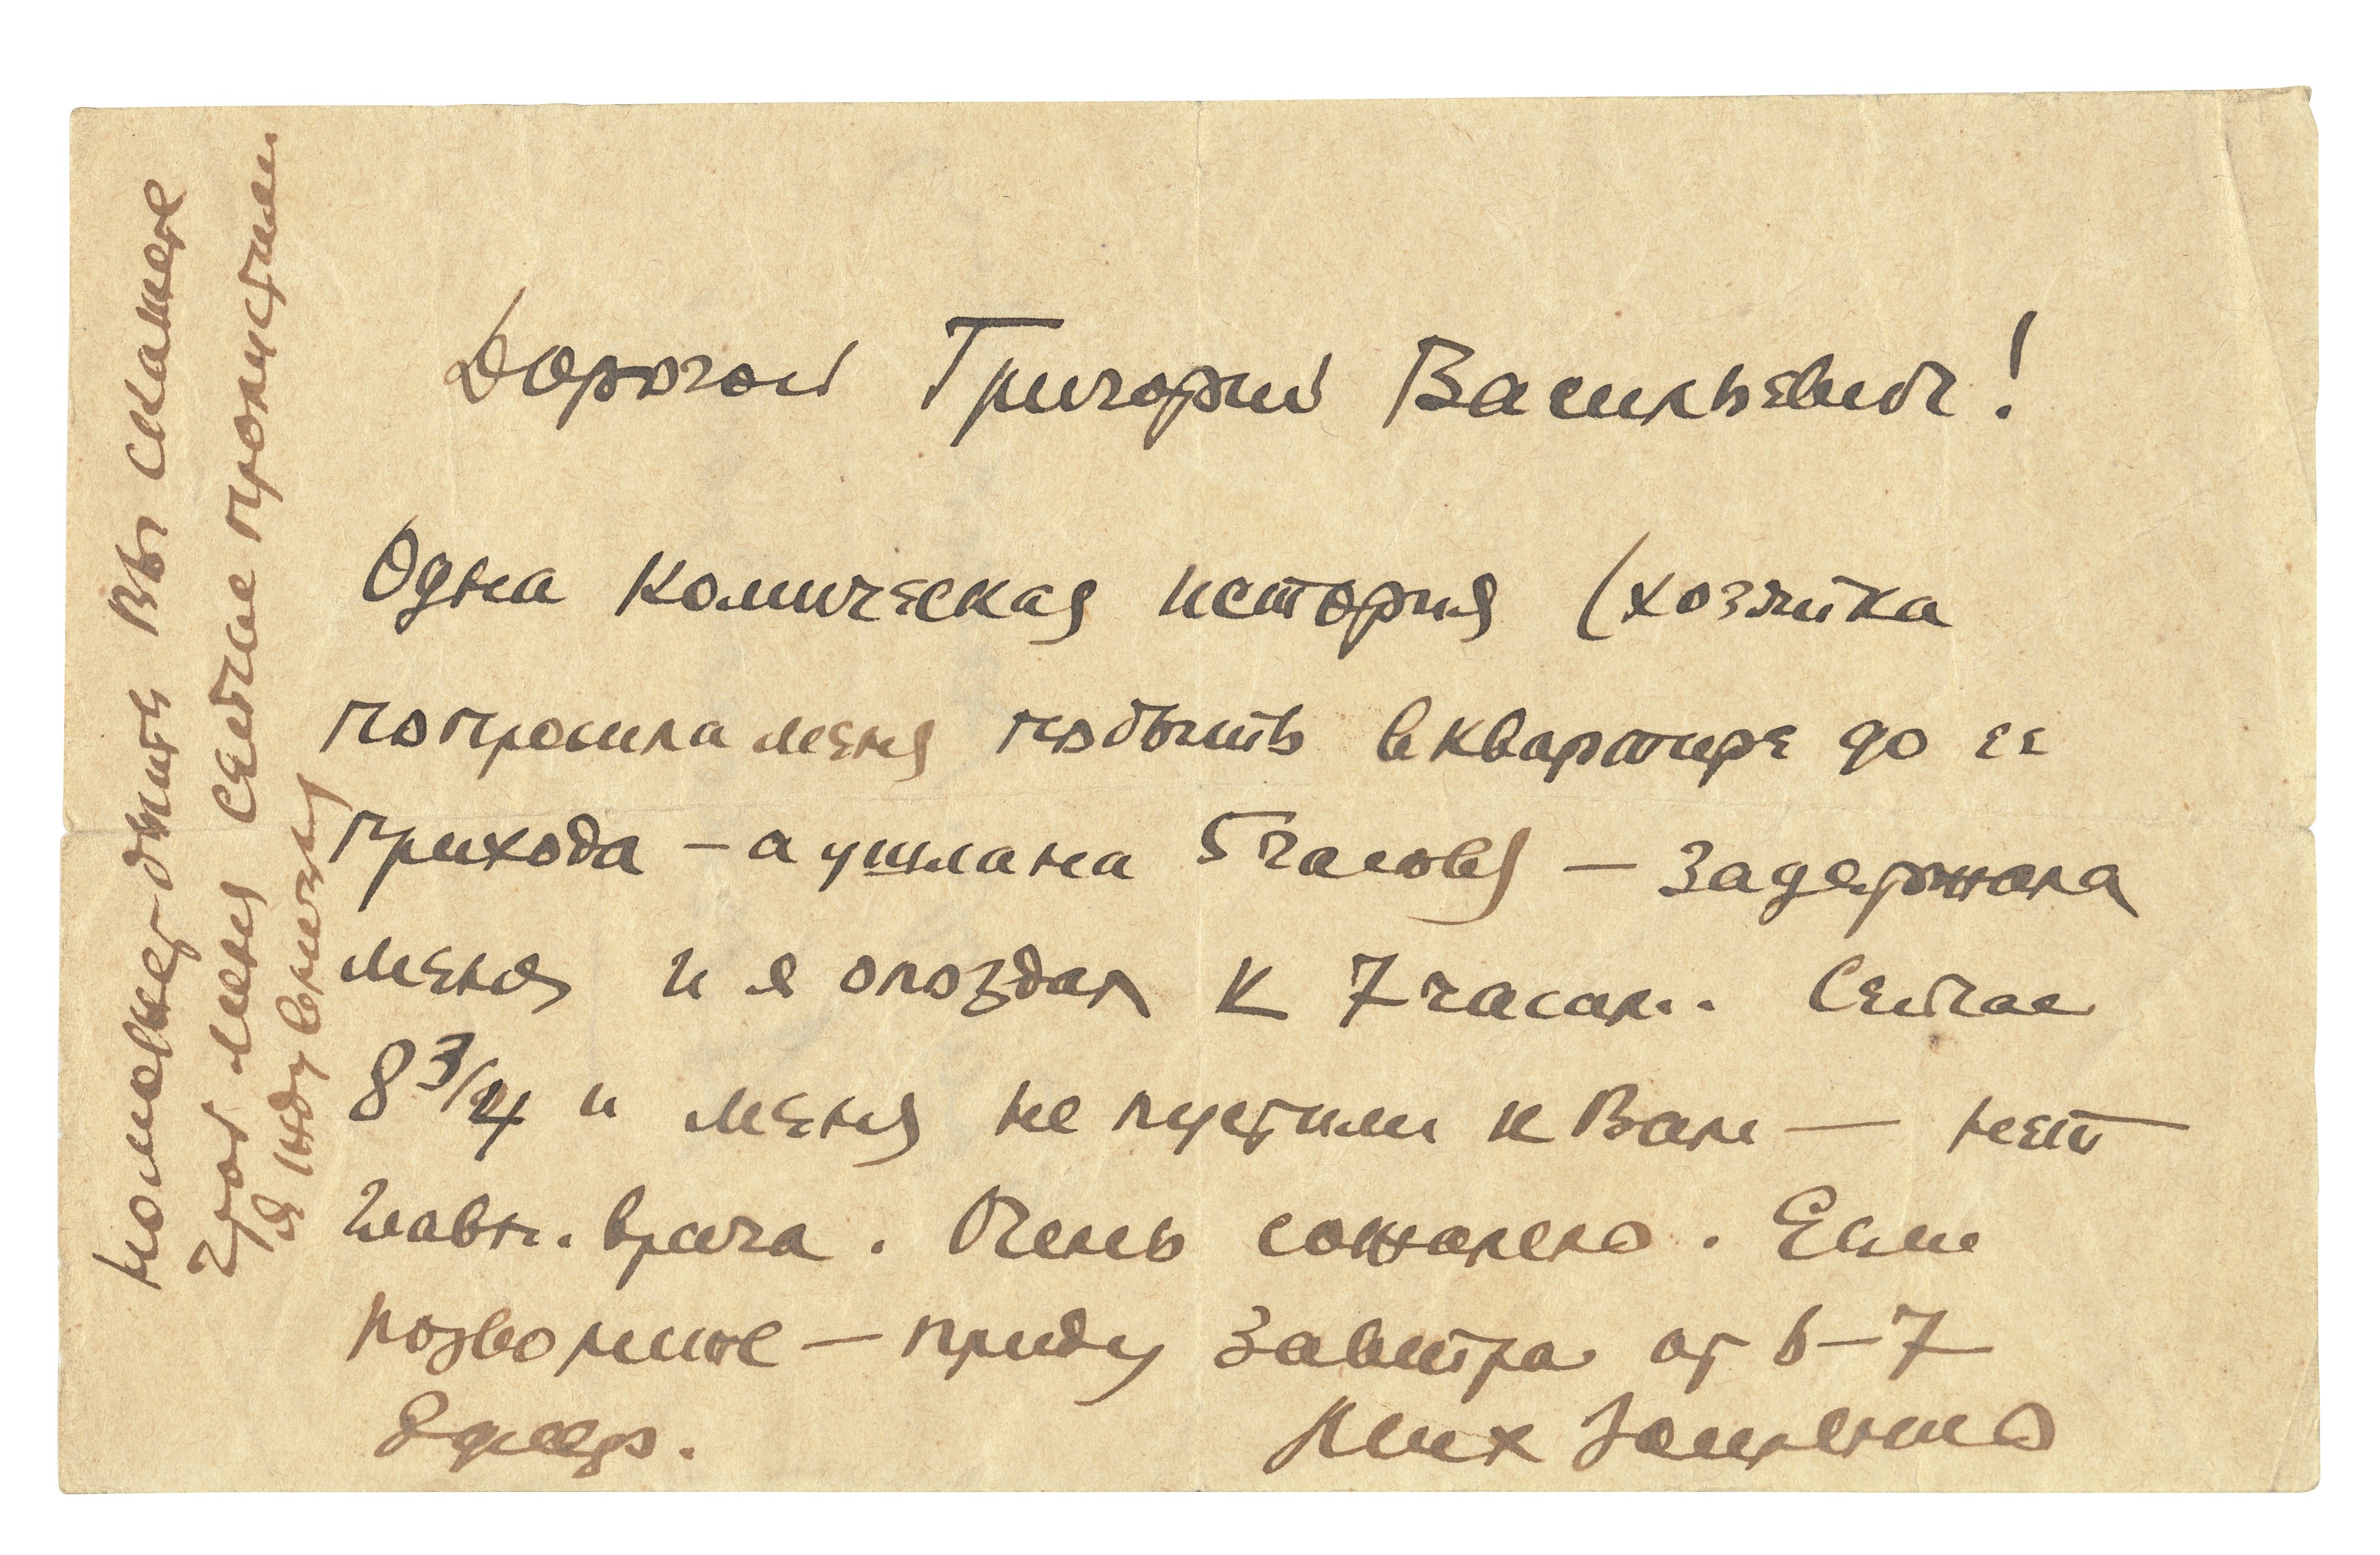 Дорогой Григорий Васильевич!
Одна комическая история (хозяйка
попросила меня побыть в квартире до ее
прихода – а ушла на 5 часов) – задержала
меня и я опоздал к 7 часам. Сейчас
8 3/4 и меня не пустили к Вам — нет
главн. врача. Очень сожалею. Если
позволите — приду завтра от 6–7
Мих Зощенко
может быть Вы скажете
чтоб меня сейчас пропустили
Я жду внизу